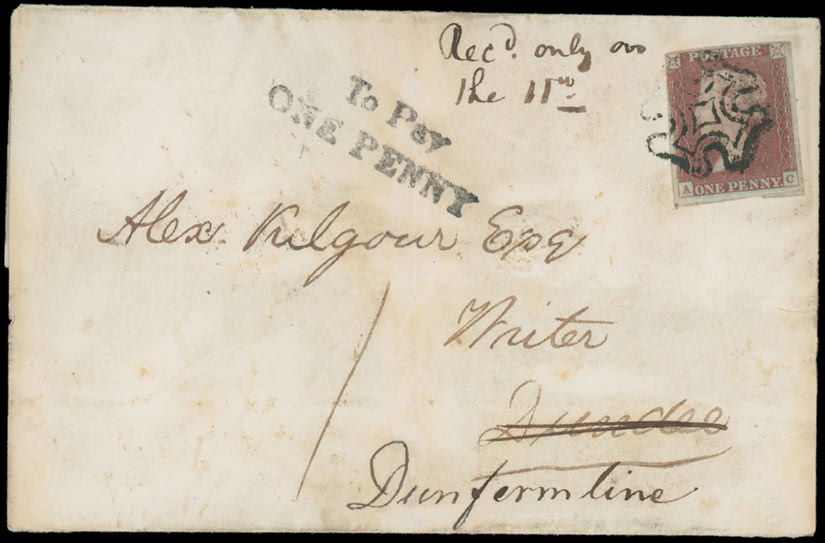 Recd. only on
the 11th
POSTAGE
A ONE PENNY C
To Pay
ONE PENNY
Alex. Kilgour Esq
Writer
Dundee
Dunfermline